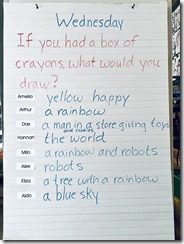 Wednesday
If you had a box of
crayons, what would you
draw?
Amelia yellow happy
Arthur a rainbow
Dax a man in a store giving toys
and cookies
Hannah the world
Milo a rainbow and robots
Alex robots
Eliza a tree with a rainbow
Aldo a blue sky